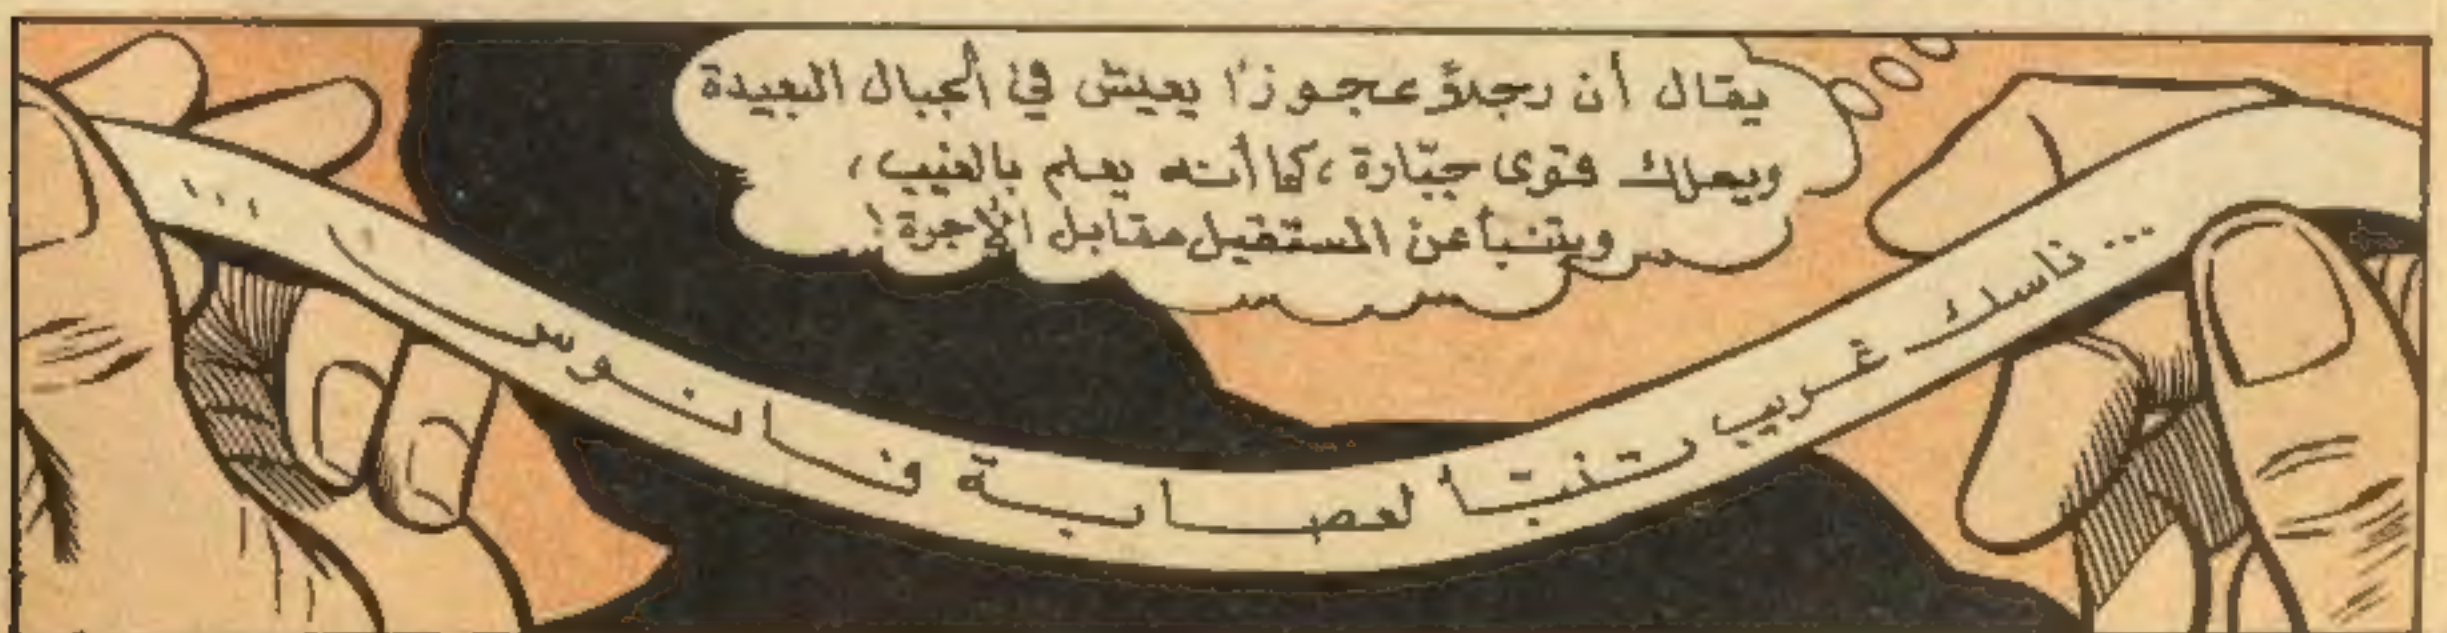 يقال أن رجلاً عجوزًا يعيش في الجبال البعيدة
ويملك قوى جبّارة، كما أنه يعلم بالغيب،
ويتنبأ عن المستقبل مقابل الأجرة!
... ناسك غريب تنبّأ لعصابة فانوس ...